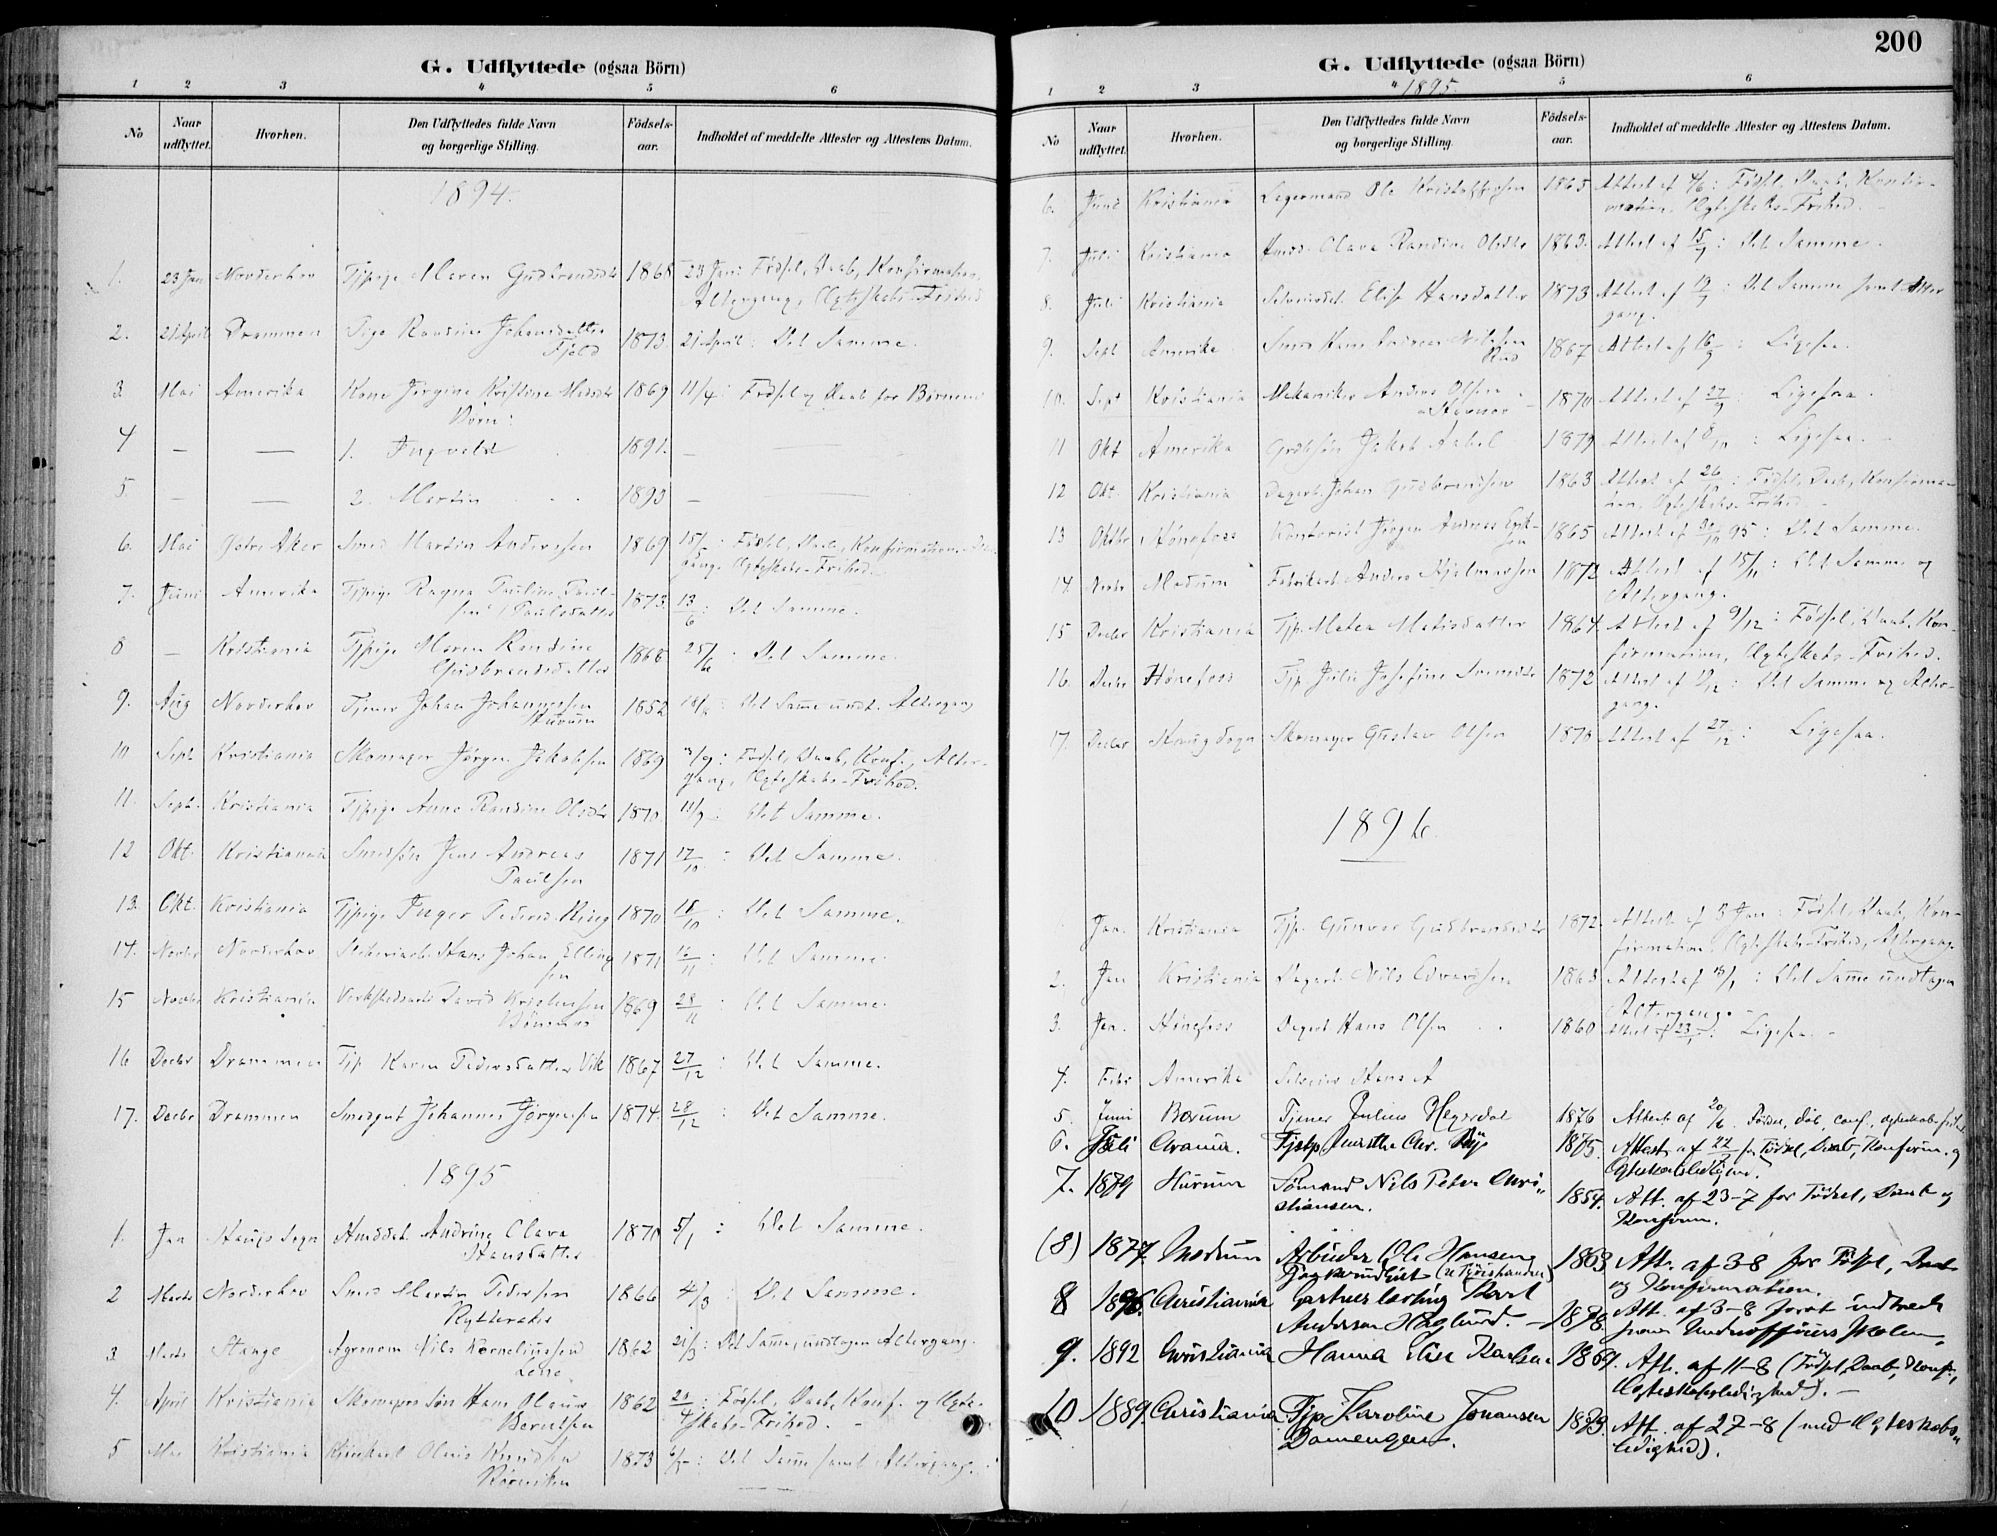 G. Udflyttede (ogsaa Börn)
1 2 3 4 5 6
No Naar udflyttet. Hvorhen. Den Udflyttedes fulde Navn og borgerlige Stilling. Födsels-aar. Indholdet af meddelte Attester og Attestens Datum.
1894.
1. 23 Jan Norderhov Tjpige Maren Gudbrandsdtr 1868 23 Jan: Fødsel, Daab, Konfirmation,
Altergang, Ægteskabs-Frihed
2. 21 April Drammen Pige Randine Johansdatter 1873. 21 April: Det Samme.
Fjeld
3. Mai Amerika Kone Jørgine Kristine 1869 11/4: Fødsel og Daab for Børnene
Børn:
4 — — 1. Ingvald 1891. —
5. — — 2 Martin 1893 —
6. Mai Østre Aker Smed Martin Andersen 1869 15/5: Fødsel, Daab, Konfirmation,
gang. Ægteskabs-Frihed.
7. Juni Amerika Tjpige Ragna Pauline Paul-
sen / Paulsdatter 1873. 13/6: Det Samme.
8 — Kristiania Tjpige Maren Randine 1868 25/6: Det Samme.
Gudbrandsdatter
9. Aug Norderhov Tjener Johan Johannessen 1852 Det Samme undt. Altergang
10 Sept Kristiania Skomager Jørgen Jakobsen 1869 /9: Fødsel, Daab, Konf., Alter-
gang, Ægteskabs-Frihed.
11. Sept. Kristiania Tjpige Anne Randine Olsdtr 1870 11/9: Det Samme.
12 Okt. Kristiania Smedsøn Jens Andreas 1871 17/10: Det Samme.
Paulsen
13. Okt. Kristiania Tjpige Inger Pedersd. Ring 1870 18/10: Det Samme.
14. Novbr Norderhov Hans Johan Elling
sen 1871 16/11: Det Samme.
15 Novbr Kristiania David Kristensen 1869 28/11: Det Samme.
16 Decbr Drammen Tjp Karen Pedersdatter Vik 1867 27/12: Det Samme.
17. Decbr Drammen Smedgut Johannes Jørgensen 1874 28/12: Det Samme.
1895
1. Jan Andrine Olava 1870 5/1: Det Samme.
Hansdatter
2 Marts Norderhov Smed Martin Pedersen 1866 4/3: Det Samme.
3 Marts Stange Agronom Nils Korneliussen 1862 21/3: Det Samme, undtagen Altergang.
4. April Kristiania Skomagersøn Hans Olaus 1862 Fødsel, Daab, Konf. og Ægte-
Berntsen skabs-Frihed.
5 Mai Kristiania Olaus Knudsen 1873 Det Samme samt Altergang.
200
G. Udflyttede (ogsaa Börn)
1895.
1 2 3 4 5 6
No Naar udflyttet. Hvorhen. Den Udflyttedes fulde Navn og borgerlige Stilling. Födsels-aar. Indholdet af meddelte Attester og Attestens Datum.
6. Juni Kristiania Legermand Ole Kristoffersen 1865 Attest af 4/6: Fødsel, Daab, Konfir-
mation, Ægteskabs-Frihed.
7. Juli Kristiania Olava Randine Olsdtr 1863. Attest af 15/7: Det Samme.
8. Juli Kristiania Elise Hansdatter 1873 Attest af 19/7: Det Samme samt Alter
gang.
9. Sept Amerika Smed Hans Andreas Nilsen 1867 Attest af 16/9: Ligesaa.
Rud
10. Sept Kristiania Mekaniker Anders Olsen 1870 Attest af 27/9: Ligesaa.
11 Okt Amerika Jakob Aabel 1879 Attest af 8/10: Ligesaa.
12 Okt. Kristiania Dagarb. Johan Gudbrandsen 1863 Attest af 26/10: Fødsel, Daab, Konfirma-
tion, Ægteskabs-Frihed
13 Oktbr Hønefoss Kontorist Jørgen Andreas Erik-
sen 1865 Attest af 30/10 95: Det Samme.
14. Novbr Modum Fabrikarb. Anders Hjelmersen 1872 Attest af 15/11: Det Samme og
Altergang.
15 Decbr Kristiania Tjp. Matea Matisdatter 1864 Attest af 9/12: Fødsel, Daab, Kon-
firmation, Ægteskabs-Frihed.
16. Decbr Hønefoss Tjp. Julie Josefine 1872 Attest af /12: Det Samme og Alter-
gang.
17. Decbr Skomager Gustav Olsen 1870 Attest af 27/12: Ligesaa.
1896.
Jan. Kristiania Tjp. Gunvor Gudbrandsdtr 1872. Attest af 3 Jan: Fødsel, Daab, Kon-
firmation, Ægteskabs-Frihed, Altergang.
2. Jan Kristiania Dagarb. Nils Edvardsen 1863 Attest af /1: Det Samme undtagen
Altergang.
3. Jan. Hønefoss Dagarb Hans Olsen 1860 Attest af 23/1: Ligesaa.
4. Febr Amerika Hans A
5. Juni Bærum Tjener Julius Hegerdal 1876 Attest af 20/6. Fødsel, dåb, conf., ægteskabsfrihed
6. Juli Chrania. Tjstp. Chr. 1875. Attest af 22/ for Fødsel, Daab, Konfirm. og
Ægteskabsledighed.
7. 1879 Hurum Sømand Nils Peter Chri-
stiansen. 1854. Att. af 23-7 for Fødsel, Daab og
Konfirm.
(8) 1877. Modum Arbeider Ole Hansen 1863 Att. af 3-8 for Fødsel, Daab
og Konfirmation.
8 1896. Christiania Gartnerlærling Karl
Anderson Haglund. — 1878. Att. af 3-8 forat indtræde
paa Underofficersskolen.
9. 1892 Christiania Hanna Elise Karlsen 1869. Att. af 11-8 (Fødsel, Daab, Konf.,
Ægteskabsledighed). —
10 1889. Christiania Tjp Karoline Johansen
Damengen. 1873. Att. af 27-8 (med Ægteskabs-
ledighed).